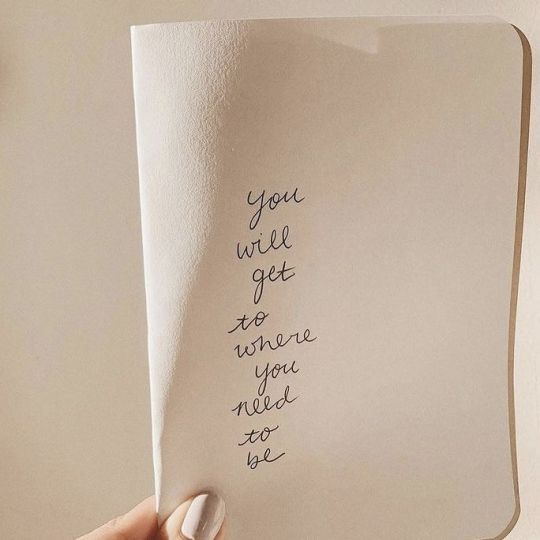 You
will
get
to
where
you
need
to
be